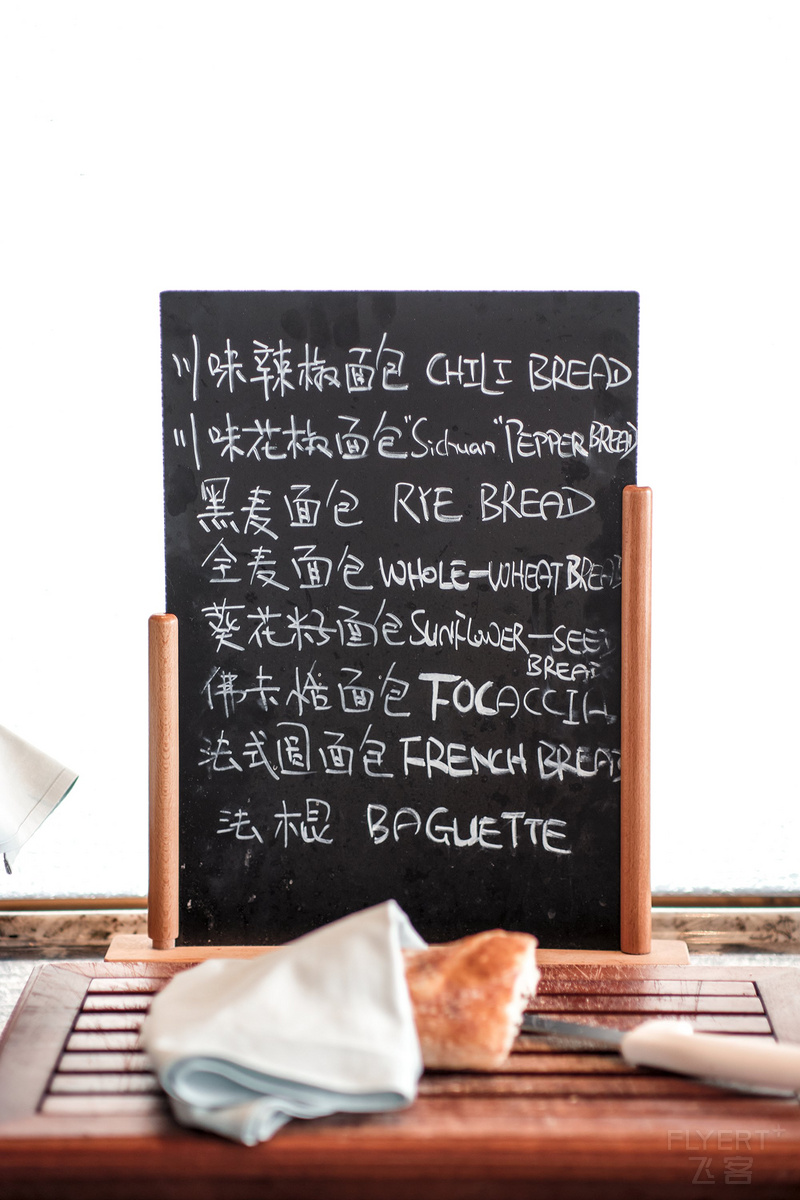 川味辣椒面包 CHILI BREAD
川味花椒面包 "Sichuan" PEPPER BREAD
黑麦面包 RYE BREAD
全麦面包 WHOLE-WHEAT BREAD
葵花籽面包 SUNFLOWER-SEED
BREAD
佛卡恰面包 FOCACCIA
法式圆面包 FRENCH BREAD
法棍 BAGUETTE
FLYERT+
飞客